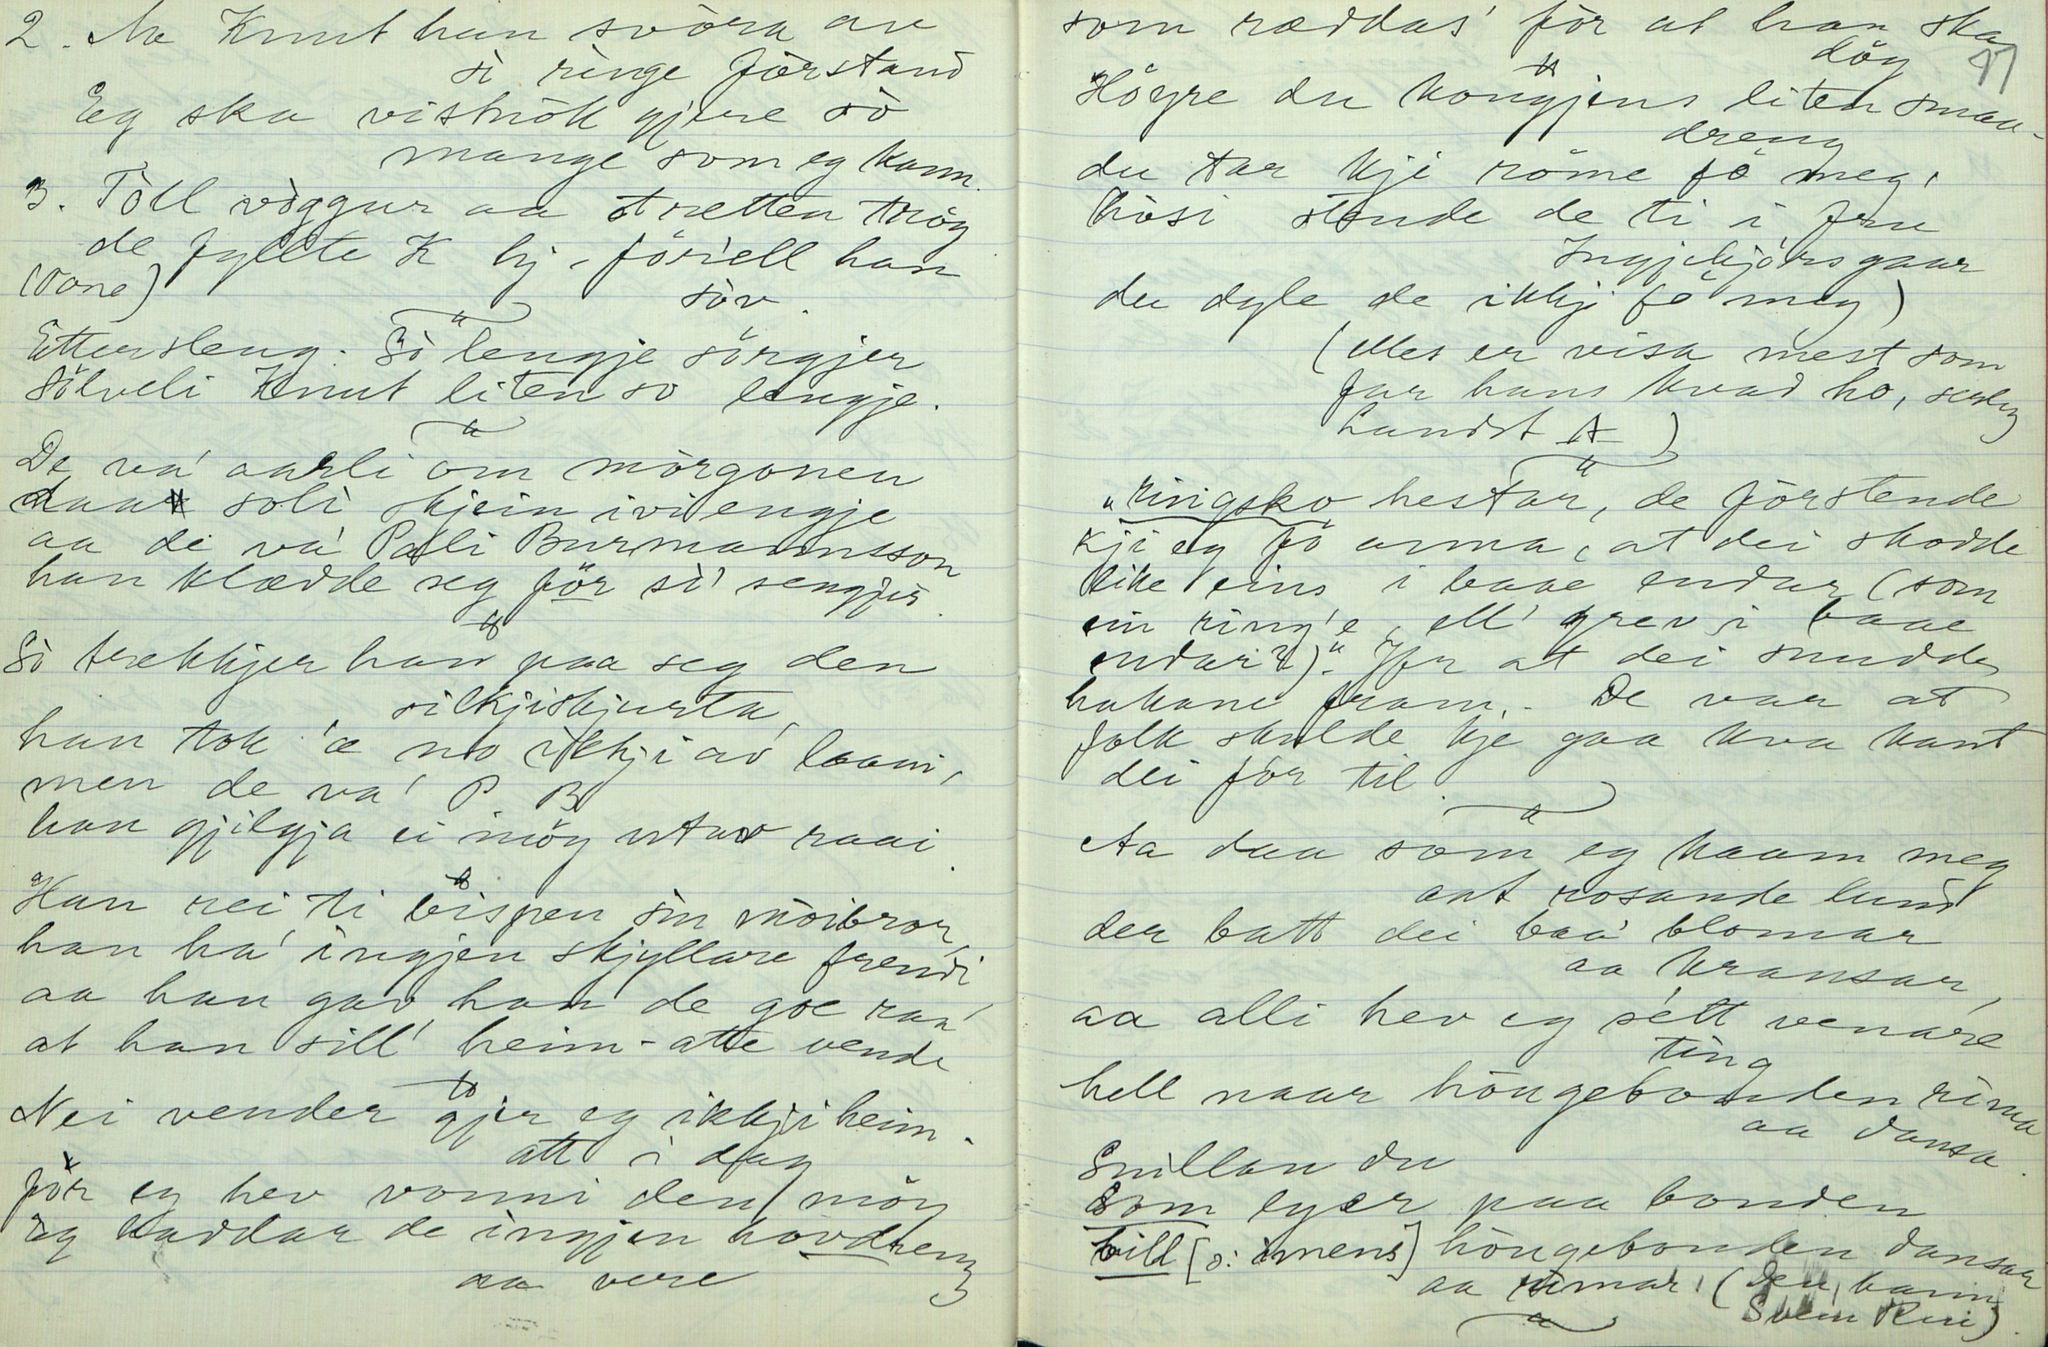 2. No Knut han svòra av
si ringe fòrstand
Eg ska vistnòk gjere sò
mange som eg kann.
3. Tòll vòggur aa trretten trög
de fyllte K lij - fòriell han
(Tone) söv.
Ettersleng. Sò lengje sörgjer
Sölveli Knut liten so lengje.
De va' aarli om mòrgonen
daa soli skjein ivi engje
aa de va' Palli Burmannsson
han klædde seg för si' sengjir.
Sò trekkjer han paa seg den
silkjiskjurta,
han tok 'æ no ikkji av laani,
men de va' P. B
han gjilgja ei möy utav raai.
Han rei ti bispen sin mòibror,
han ha' ingjen skjyllare frendi
aa han gav han de goe raa'
at han sill' heim-atte vende
Nei vender gjer eg ikkji heim-
att i dag
fòr eg hev vonni den möy
eg raddar de ingjen hovdreng
aa vere
som ræddas' fòr at han ska
döy 47
Höyre du kongjens liten smaa-
dreng
du tar kji röme fò meg,
hòsi stende de ti i fru
Ingjebjòrs gaar
du dyle de ikkji fò meg)
(elles er visa mest som
far hans kvad ho, serleg
Landst A)
"ringsko hestar, de fòrstende
kji eg pò anna, at dei skodde
like eins i baae endar (som
ein ring'e, ell' grev i baae
endar?)". Hr at dei snudde
hakane fram. - De var at
folk skulde kje gaa kva kant
dei fòr til.
Aa daa som eg kaam meg
aat rosande lund
der batt dei baa' blomar
aa kransar,
aa alli hev eg sétt venare
ting
hell naar hòugebonden rima
aa dansa.
Snillan du
Som eger paa bonden
bill [ɔ: imens] hòugebonden dansar
aa rimar. (Den, kann
Svein Rui).